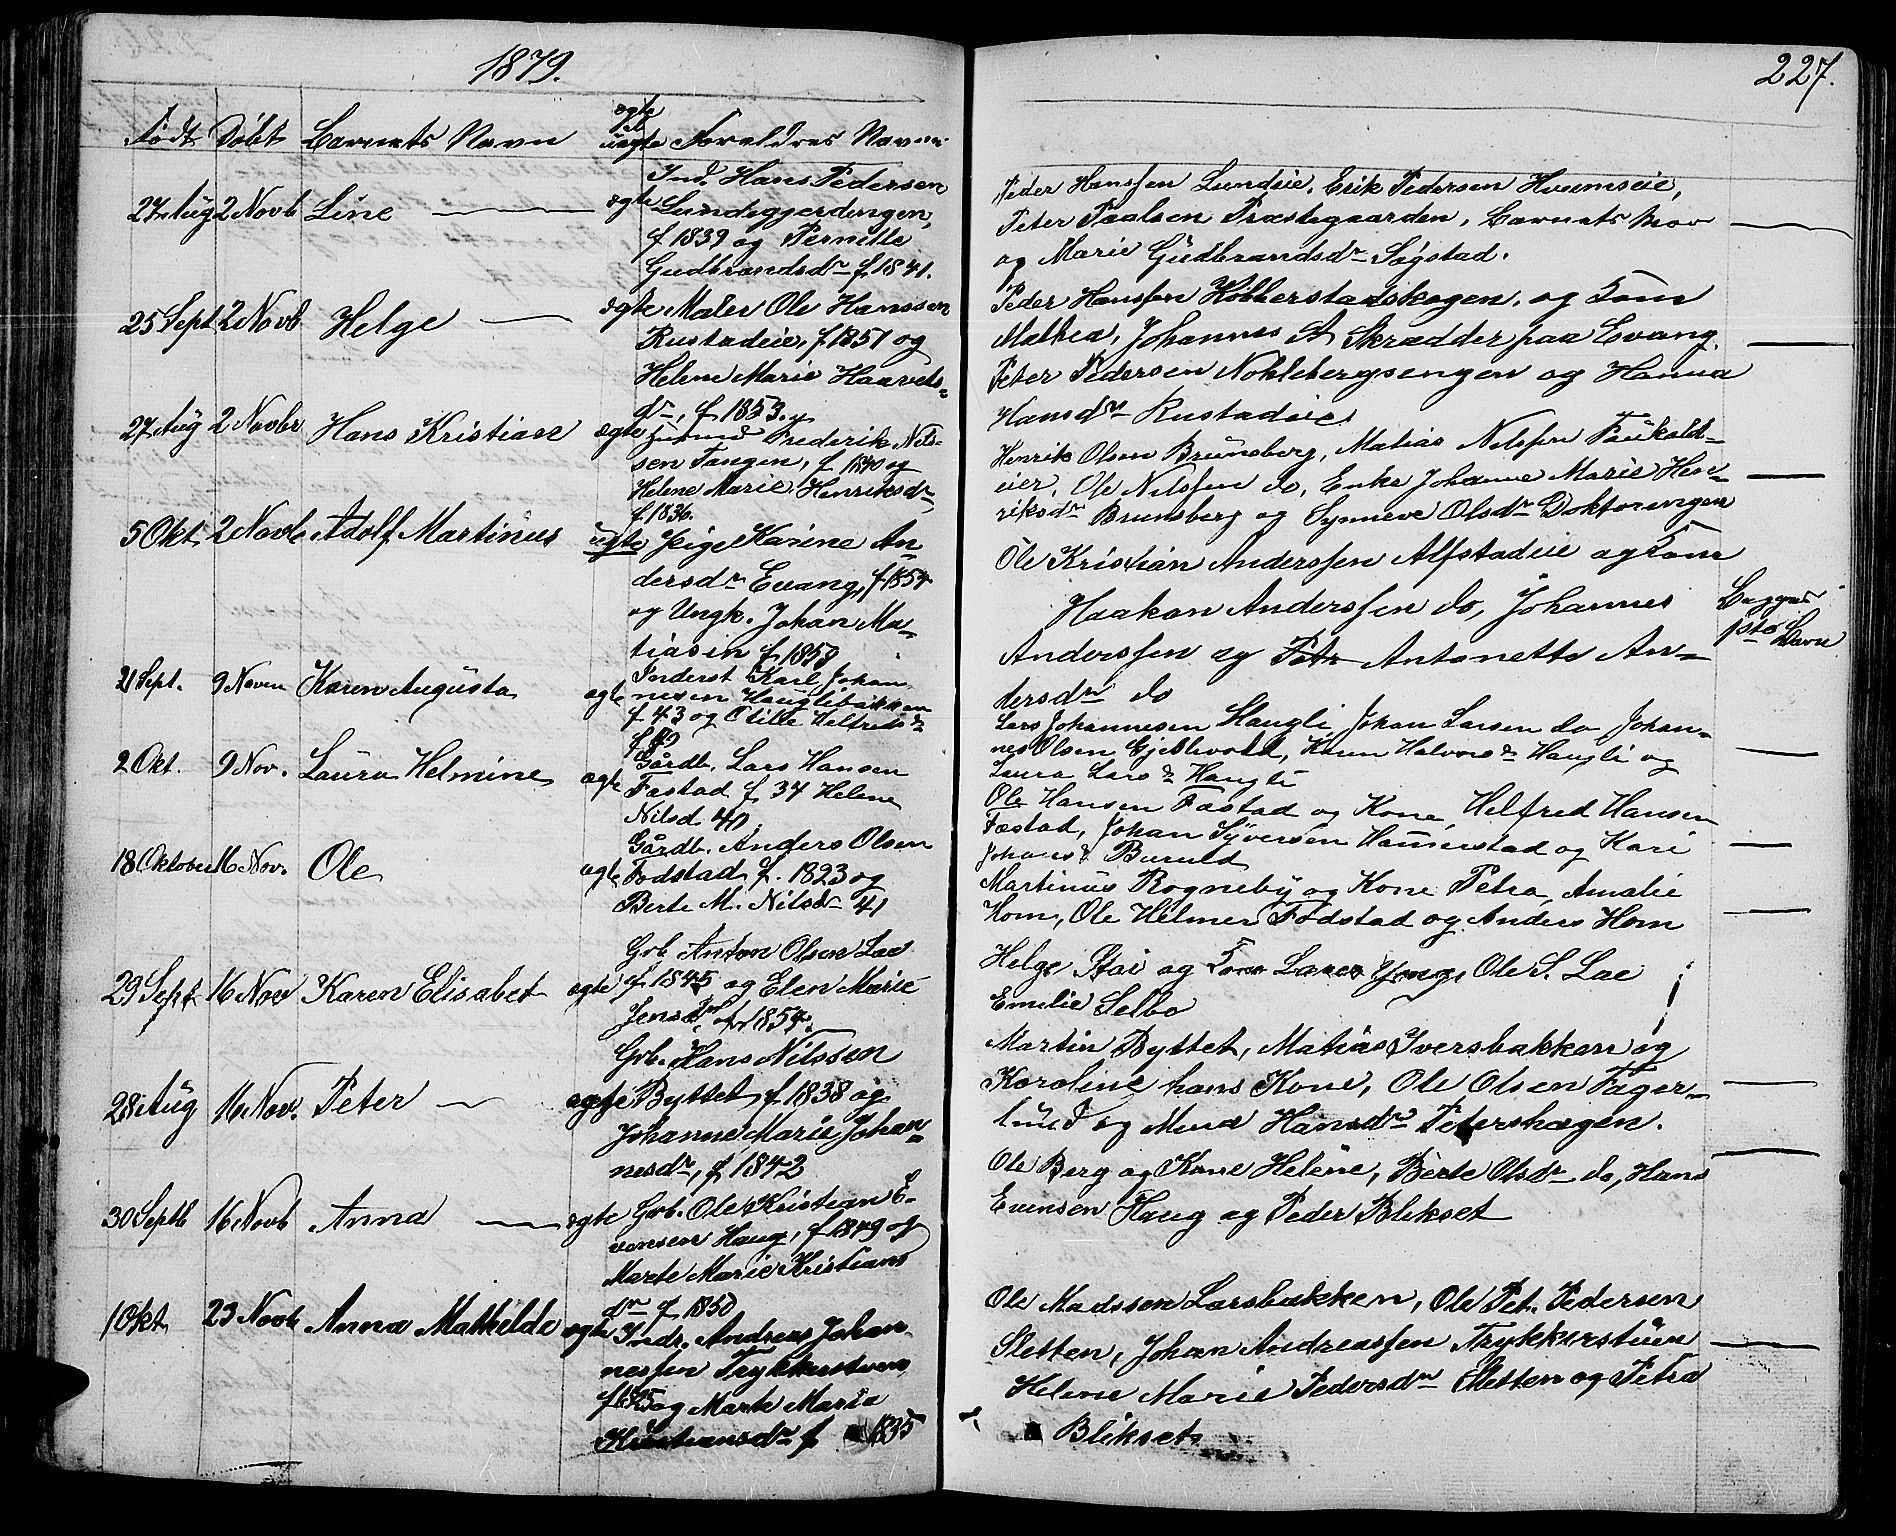 1879.
227.
Født Døbt Barnets Navn ægte el uægte Forældres Navne
27 Aug 2 Novb Line ægte Ind. Hans Pedersen
Lundegjerdingen,
f 1839 og Pernille
Gudbrandsdr f. 1841.
Peder Hanssen Lundeie, Erik Pedersen Huumseie,
Peter Paalsen Præstegaarden, Barnets Mor
og Marie Gudbrandsdr Søgstad.
25 Sept 2 Novb Helge ægte Maler Ole Hanssen
Rustadeie, f 1851 og
Helene Marie Haavels-
dr, f 1853.
Peder Hanssen Kobberstadskogen, og Kone
Mathea, Johannes A Skrædder paa Evang,
Peter Pedersen Nohlebergsengen og Hanna
Hansdr Rustadeie
27 Aug 2 Novbr Hans Kristian ægte Husmd Frederik Nils-
sen Tangen, f 1840 og
Helene Marie Henriksdr
f. 1836.
Henrik Olsen Brunsberg, Matias Nilssen Faukald-
eier, Ole Nilssen do, Enke Johanne Marie Hen-
riksdr Brunsberg og Synneve Olsdr Doktorengen
5 Okt 2 Novb Adolf Martinus uægte Pige Karine An-
dersdr Evang, f 1854
og Ungk. Johan Ma-
tiasen f 1858
Ole Kristian Anderssen Alfstadeie og Kone
Haakon Anderssen do, Johannes
Anderssen og Antonette An-
dersdr do
Begges
1ste Barn
21 Sept. 9 Novem Karen Augusta ægte Inderst Karl Johan-
nesen Hauglibakken
f 43 og Otilie Helfredsd
f 49
Lars Johannesen Haugli Johan Larsen do Johan-
nes Olsen Gjestvold, Karen Halvorsd Haugli og
Laura Larsd Haugli
2 Okt. 9 Nov. Laura Helmine ægte Gårdb. Lars Hansen
Fæstad f 34 Helene
Nilsd. 40
Ole Hansen Fæstad og Kone, Helfred Hansen
Fæstad, Johan Syversen Hammerstad og Kari
Johansd Buruld
18 Oktober 16 Nov. Ole ægte Gårdb. Anders Olsen
Fodstad f. 1823 og
Berte M. Nilsdr 41
Martinus Rogneby og Kone Petra, Amalie
Hom, Ole Helmer Fodstad og Anders Hom
29 Sept 16 Nov Karen Elisabet ægte Grb. Anton Olsen Lae
f 1845 og Elen Marie
Jensdr, f 1854.
Helge Stai og Kone Ole S. Lae
Emilie Selbo
28 Aug 16 Nov. Peter ægte Grb. Hans Nilssen
Byttet, f 1838 og
Johanne Marie Johan-
nesdr, f 1842
Martin Byttet, Matias Iversbakken og
Karoline hans Kone, Ole Olsen Fager-
lund og Mina Hansdr Petershagen.
30 Septb 16 Novb Anna ægte Grb. Ole Kristian E-
vensen Haug, f 1849 og
Marte Marie Kristians
dr f 1850
Ole Berg og Kone Helene, Berte Olsdr do, Hans
Evensen Haug og Peder Blikset
1 Okt 23 Novb Anna Mathilde ægte Indr. Andreas Johan-
nessen Trykkerstuen
og Marte Maria
Kristiansdr f 1835
Ole Madssen Larsbakken, Ole Pet. Pedersen
Sletten, Johan Andreassen Trykkerstuen
Helene Marie Pedersdr Sletten og Petra
Blikset